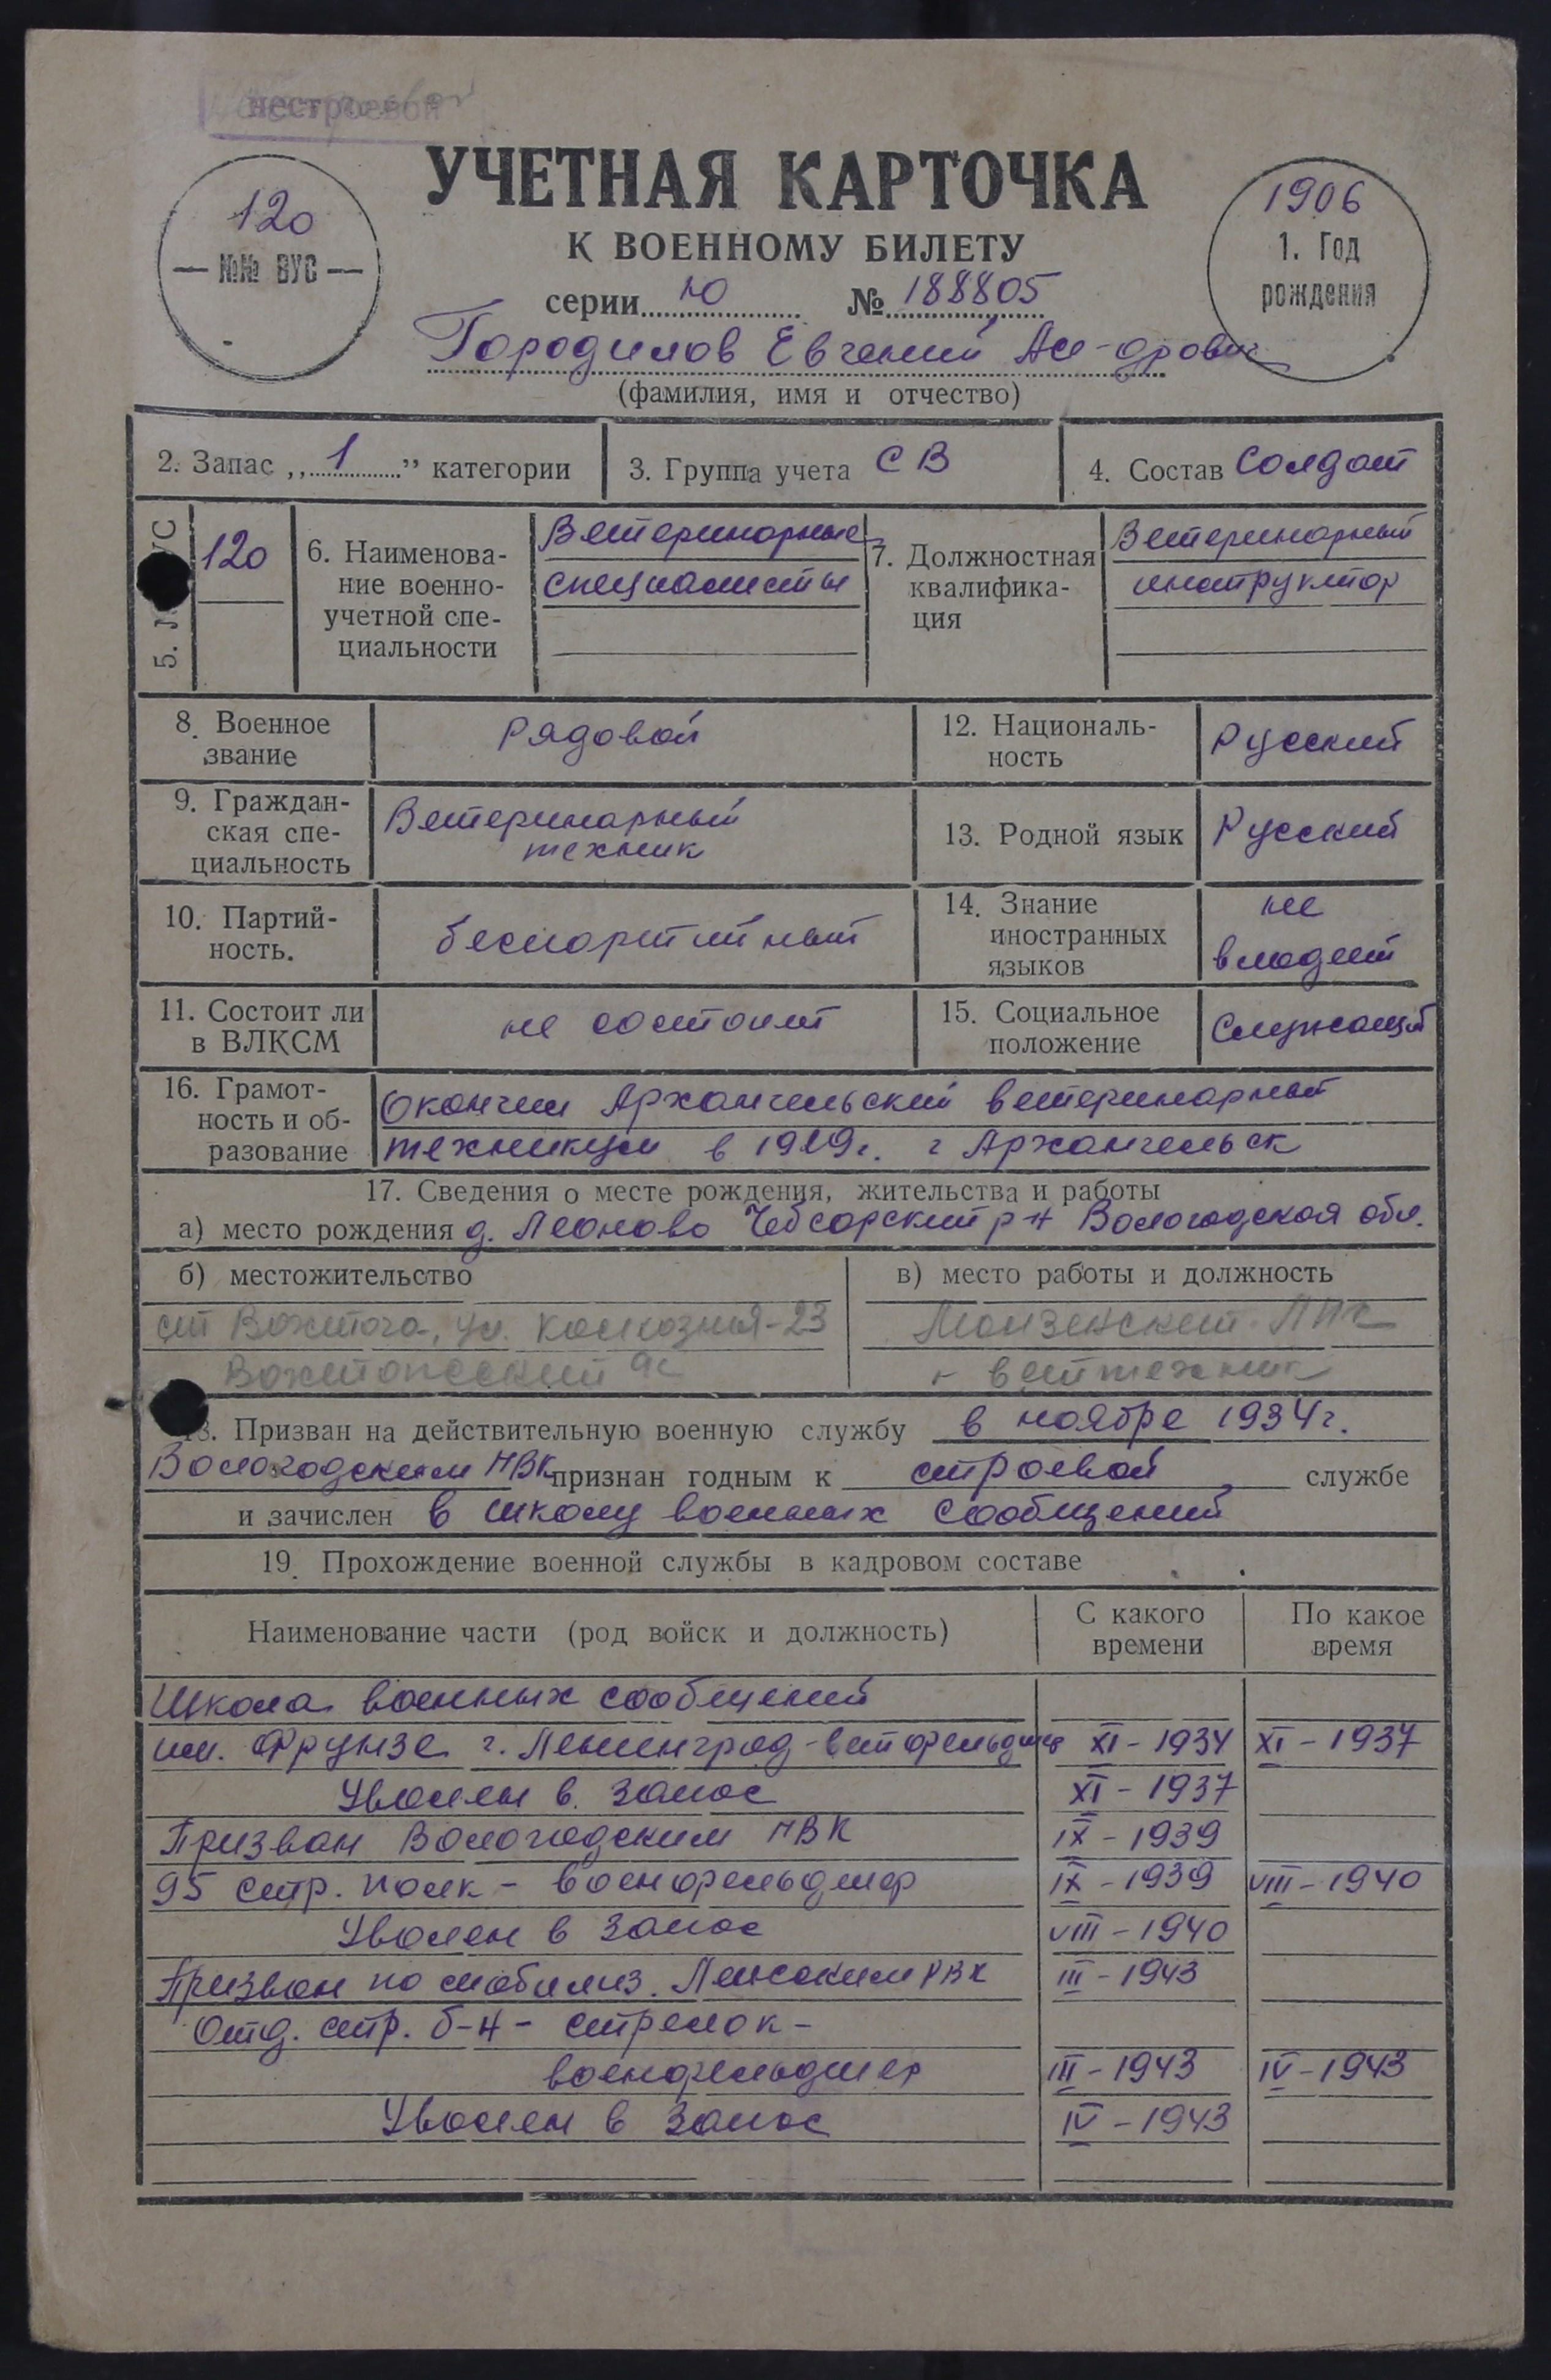 нестроевой
УЧЕТНАЯ КАРТОЧКА
К ВОЕННОМУ БИЛЕТУ
120
— №№ ВУС —
1906
1. Год
рождения
серии Ю № 188805
Городилов Евгений Ал-дрович
(фамилия, имя и отчество)
2. Запас „ 1 ” категории
3. Группа учета СВ
4. Состав Солдат
5. 
120
6. Наименова-
ние военно-
учетной спе-
циальности
Ветеринарные
специалисты
7. Должностная
квалифика-
ция
Ветеринарный
инструктор
8. Военное
звание
Рядовой
12. Националь-
ность
Русский
9. Граждан-
ская спе-
циальность
Ветеринарный
техник
13. Родной язык
Русский
10. Партий-
ность.
беспартийный
14. Знание
иностранных
языков
не
владеет
11. Состоит ли
в ВЛКСМ
не состоит
15. Социальное
положение
Служащий
16. Грамот-
ность и об-
разование
Окончил Архангельский ветеринарный
техникум в 1929г. г Архангельск
17. Сведения о месте рождения, жительства и работы
а) место рождения д. Леоново Чебсарский р-н Вологодская обл.
б) местожительство
ст Вохтога, ул. Колхозная-23
Вохтожский
в) место работы и должность
Монзенский ЛПХ
- веттехник
18. Призван на действительную военную службу в ноябре 1934г.
Вологодским РВК признан годным к строевой службе
и зачислен в школу военных сообщений
19. Прохождение военной службы в кадровом составе
Наименование части (род войск и должность)
С какого
времени
По какое
время
Школа военных сообщений
им. Фрунзе г. Ленинград - ветфельдшер XI - 1934 XI - 1937
Уволен в запас XI - 1937
Призван Вологодским РВК IX - 1939
95 стр. полк - военфельдшер IX - 1939 VIII - 1940
Уволен в запас VIII - 1940
Призван по мобилиз. Ленским РВК III - 1943
Отд. стр. б-н - стрелок -
военфельдшер III - 1943 IV - 1943
Уволен в запас IV - 1943